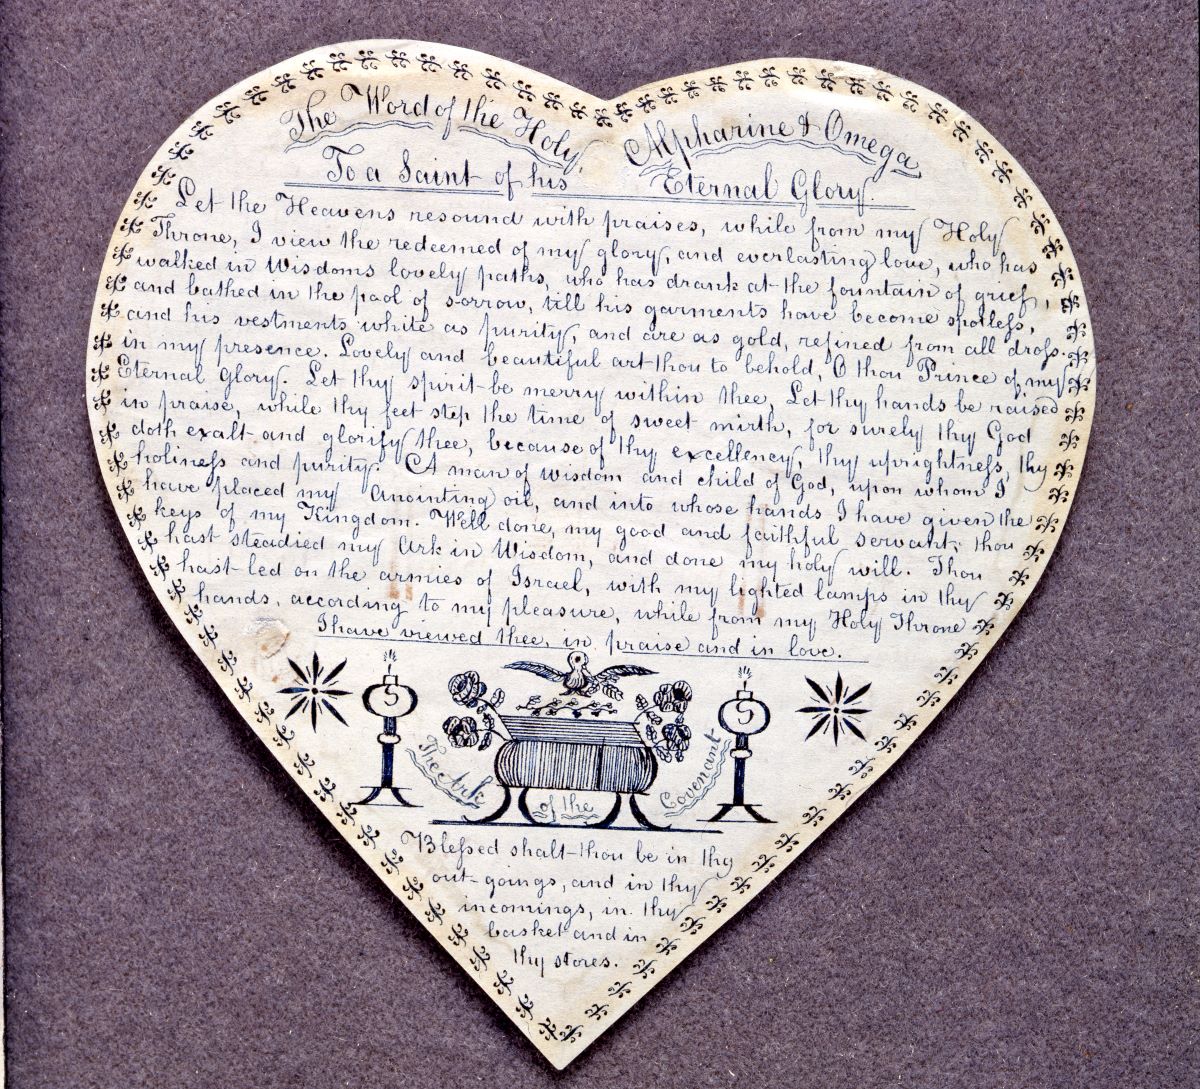 The Word of the Holy Alpharine & Omega
To a Saint of his Eternal Glory.
Let the Heavens resound with praises, while from my Holy
Throne, I view the redeemed of my glory, and everlasting love, who has
walked in Wisdoms lovely paths, who has drank at the fountain of grief,
and bathed in the pool of sorrow, till his garments have become spotless,
and his vestments white as purity, and are as gold, refined from all dross.
in my presence. Lovely and beautiful art thou to behold, O thou Prince of my
Eternal Glory. Let thy spirit be merry within thee, Let thy hands be raised
in praise, while thy feet step the time of sweet mirth, for surely thy God
doth exalt and glorify thee, because of thy excellency, thy uprightness, thy
holiness and purity. A man of wisdom and child of God, upon whom I
have placed my anointing oil, and into whose hands I have given the
keys of my Kingdom. Well done, my good and faithful servant; thou
hast steadied my Ark in Wisdom, and done my holy will. Thou
hast led on the armies of Israel, with my lighted lamps in thy
hands, according to my pleasure, while from my Holy Throne
I have viewed thee, in praise and in love.
5 5
The Ark of the Covenant
Blessed shalt thou be in thy
out-goings, and in thy
incomings, in thy
basket and in
thy stores.